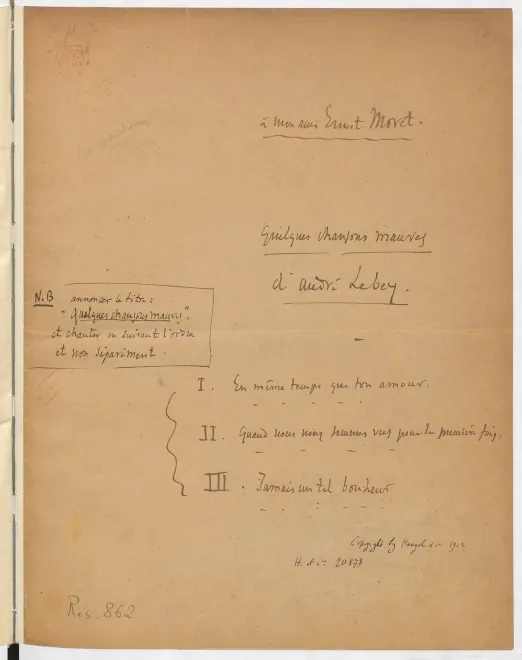 à mon ami Ernest Moret.
Quelques chansons mauves
d'André Lebey.
N.B annoncer le titre :
"Quelques chansons mauves".
et chanter en suivant l'ordre
et non séparément.
I. En même temps que ton amour.
II. Quand nous nous sommes vus pour la première fois.
III. Jamais un tel bonheur
Copyright by Heugel et Cie 1902
H. et Cie 20878
Rés. 862